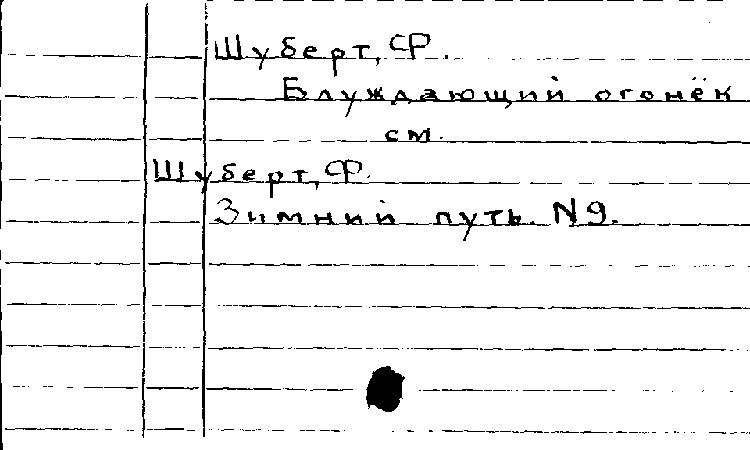 Шуберт, Ф.
Блуждающий огонёк
см.
Шуберт, Ф.
Зимний путь. N9.